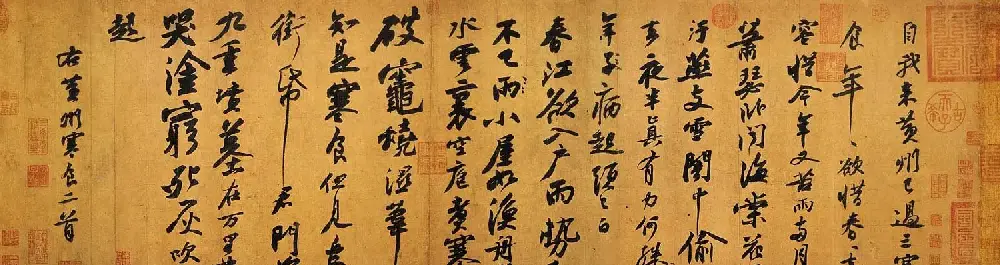 自我来黄州已過三寒
食年々欲惜春々去
容惜今年又苦雨兩月
蕭瑟卧聞海棠花
汙燕支雪闇中偷
去夜半真有力何殊
年子病起頭已白
春江欲入户雨勢
不已雨小屋如漁舟
水雲裏空庖煮寒
破竈燒濕葦
知是寒食但見烏
銜帋君門深
九重墳墓在万里
哭塗窮死灰吹
起
右黄州寒食二首